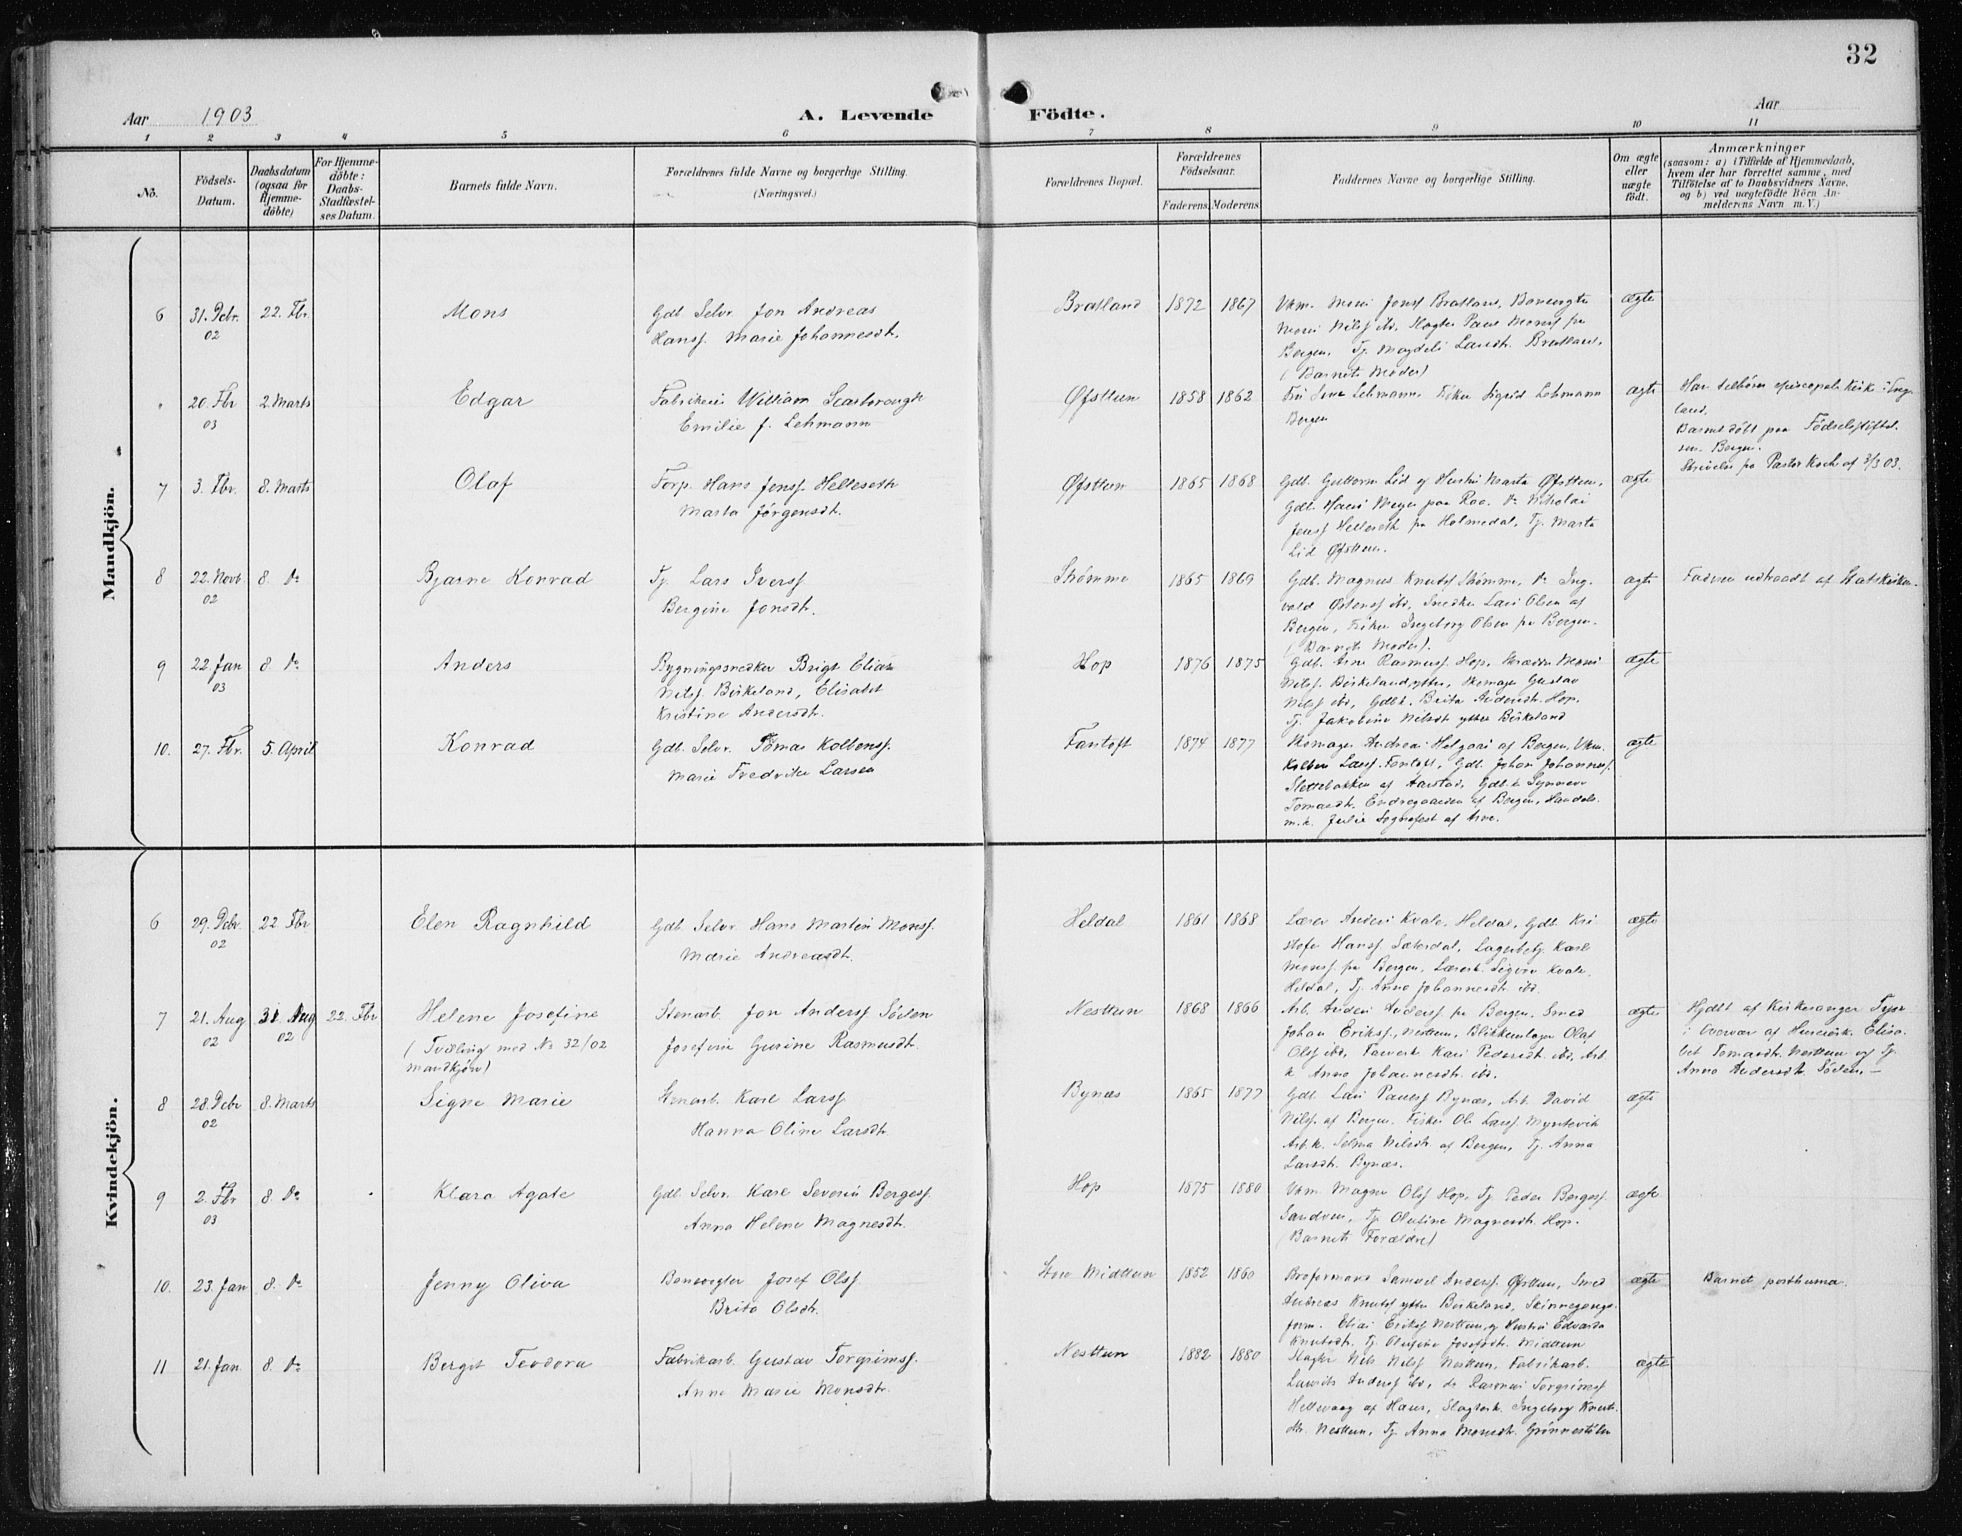 32
Aar 1903
A. Levende Födte.
Aar
1 2 3 4 5 6 7 8 9 10 11
No.
Födsels-Datum.
Daabsdatum (ogsaa for Hjemme-döbte)
For Hjemme-döbte: Daabs-Stadfæstel-ses Datum.
Barnets fulde Navn.
Forældrenes fulde Navne og borgerlige Stilling.
(Næringsvei.)
Forældrenes Bopæl.
Forældrenes Födselsaar.
Faderens. Moderens.
Faddernes Navne og borgerlige Stilling.
Om ægte eller uægte födt.
Anmærkninger
(saasom: a) i Tilfælde af Hjemmedaab,
hvem der har forrettet samme, med
Tilföielse af to Daabsvidners Navne,
og b) ved uægtefödte Börn An-
melderens Navn m. V.)
Mandkjön.
6 31. Dcbr. 02 22. Fbr. Mons
Gdb. Selvr. Jon Andreas
Hansf. Marie Johannesdt.
Bratland 1872 1867
Mons Nilsf ibd,
Bergen, Tj. Magdeli Larsdt. Bratland.
(Barnets Moder)
ægte
" 20. Fbr 03 2. Marts Edgar
William Scarborough
Emilie f. Lehmann
Øfsttun 1858 1862
Lehmann, Sigrid Lehmann
Bergen
ægte
land.
Barnet döbt paa Födselsstiftel-
sen Bergen.
Pastor Koch af 3/3 03.
7 3. Fbr. 8. Marts Olaf
Forp. Hans Jensf. Helleseth
Marta Jörgensdt.
Øfsttun 1865 1868
Gdb. Guttorm Lid og Hustru Marta Øfsttun,
Nikolai
Jensf Helleseth fra Holmedal, Tj. Marta
Lid Øfsttun.
ægte
8 22. Novb. 02 8. Do Bjarne Konrad
Tj. Lars Iversf
Bergine Jonsdt.
Strømme 1865 1869
Gdb. Magnus Knutsf Strømme, Do Ing-
vald Østensf ibd, Snedker Lars Olsen af
Bergen, Ingeborg Olsen fra Bergen.
(Barnets Moder).
ægte
Faderen udtraadt af Statskirken.
9 22. Jan 03 8. Do Anders
Bygningssnedker Brigt Elias
Nilsf. Birkeland, Elisabet
Kristine Andersdt.
Hop 1876 1875
Gdb. Arne Rasmusf. Hop,
Nilsf. Birkeland ytter, Skomager Gustav
Nilsf ibd, Brita Hop.
Tj. Jakobine Nilsdt ytter Birkeland
ægte
10. 27. Fbr. 5. April Konrad
Gdb. Selvr. Tomas Kolbensf.
Marie Fredrike Larsen
Fantoft 1874 1877
Skomager Andreas af Bergen,
Kolben Larsf. Fantoft, Gdb. Johan Johannesf.
Slettebakken af Aarstad,
Tomasdt. Endregaarden af Bergen, Handels-
m.k. Julie Sognefest af Arne.
ægte
Kvindekjön.
6 29. Dcbr. 02 22 Fbr Elen Ragnhild
Gdb. Selvr. Hans Martin Monsf.
Marie Andreasdt.
Heldal 1861 1868
Lærer Anders Kvale, Heldal, Gdb. Kri
stofer Hansf Sæterdal, Karl
Monsf. fra Bergen, Kvale,
Heldal, Tj. Anna Johannesdt ibd.
ægte
7 21. Aug 02 31. Aug 02 22. Fbr Helene Josefine
(Tvilling med No 32/02
mandkjøn)
Stenarb. Jon Andersf Söelen
Josefine Gurine Rasmusdt.
Nesttun 1868 1866
Arb. Anders Andersf fra Bergen, Smed
Johan Eriksf, Nesttun, Blikkenslager Olaf
Olsf ibd, Kari Pedersdt ibd, Arb.
k. Anna Johannesdt ibd.
ægte
Hjdbt af Kirkesanger
i Overvær af Elisa-
bet Tomasdt. Nesttun og Tj.
Anna Andersdt. Söelen. —
8 28. Dcbr 02 8. Marts Signe Marie
Stenarb. Karl Larsf
Hanna Oline Larsdt.
Bynæs 1865 1877
Gdb. Lars Bynæs, Arb. David
Nilsf. af Bergen. Fisker Ole Larsf Myntevik
Arb.k. Selma Nilsdt. af Bergen, Tj. Anna
Larsdt. Bynæs.
ægte
9 2. Fbr 03 8. Do Klara Agate
Gdb. Selvr. Karl Severin Bergesf.
Anna Helene Magnesdt.
Hop 1875 1880
Magne Olsf Hop, Tj. Peder Bergesf.
Sandven, Tj. Olufine Magnesdt. Hop.
(Barnets Forældre)
ægte
10. 23. Jan 8. Do Jenny Oliva
Banevogter Josef Olsf.
Brita Olsdt.
Store Midttun 1852 1860
Broformand Samuel Andersf. Øfsttun, Smed
Andreas Knutsf ytter Birkeland, Skinnegangs-
form. Elias Eriksf Nesttun, og Hustru Edvarda
Knutsdt. Tj. Olufine Josefsdt. Midttun
ægte
Barnet posthuma.
11 21. Jan 8. Do Berget Teodora
Fabrikarb. Gustav Torgrimsf.
Anne Marie Monsdt.
Nesttun 1882 1880
Slagter Nils Nilsf Nesttun, Fabrikarb.
Laurits Andersf ibd, do Rasmus Torgrimsf
Hellevaag af Haus, Slagterk. Ingeborg Knuts-
dt. Nesttun, Tj. Anna Monsdt. Grönnestölen
ægte